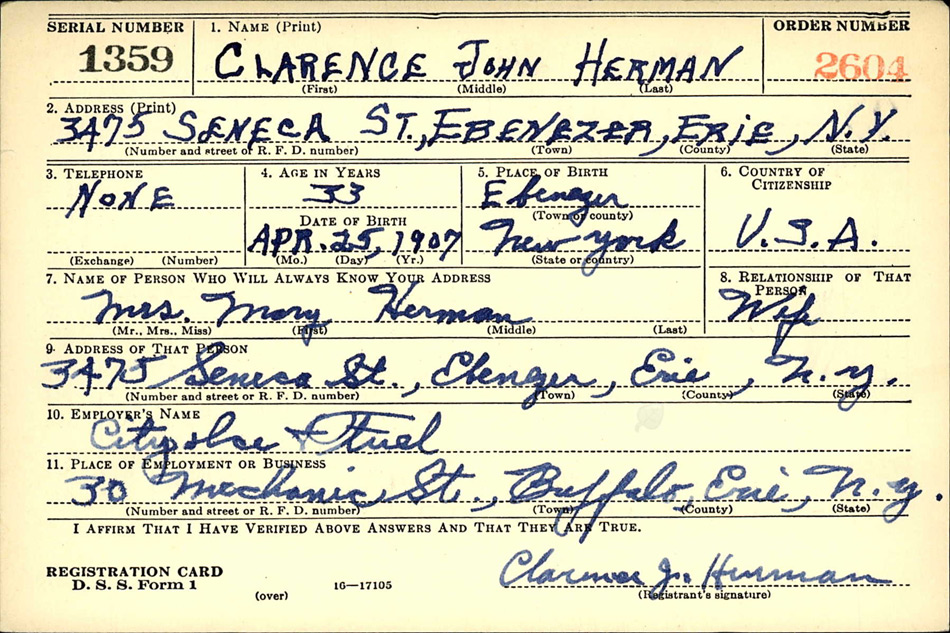 SERIAL NUMBER 1. NAME (Print) ORDER NUMBER
1359 CLARENCE JOHN HERMAN 2604
(First) (Middle) (Last)
2. ADDRESS (Print)
3475 SENECA ST., EBENEZER, ERIE, N.Y.
(Number and street or R. F. D. number) (Town) (County) (State)
3. TELEPHONE 4. AGE IN YEARS 5. PLACE OF BIRTH 6. COUNTRY OF CITIZENSHIP
NONE 33 Ebenezer
DATE OF BIRTH (Town or county)
APR. 25, 1907 New York U.S.A.
(Exchange) (Number) (Mo.) (Day) (Yr.) (State or country)
7. NAME OF PERSON WHO WILL ALWAYS KNOW YOUR ADDRESS 8. RELATIONSHIP OF THAT PERSON
Mrs. Mary Herman Wife
(Mr., Mrs., Miss) (First) (Middle) (Last)
9. ADDRESS OF THAT PERSON
3475 Seneca St., Ebenezer, Erie, N.Y.
(Number and street or R. F. D. number) (Town) (County) (State)
10. EMPLOYER'S NAME
City Ice & Fuel
11. PLACE OF EMPLOYMENT OR BUSINESS
30 Mechanic St., Buffalo, Erie, N.Y.
(Number and street or R. F. D. number) (Town) (County) (State)
I AFFIRM THAT I HAVE VERIFIED ABOVE ANSWERS AND THAT THEY ARE TRUE.
REGISTRATION CARD Clarence J. Herman
D. S. S. Form 1 16—17105
(over) (Registrant's signature)